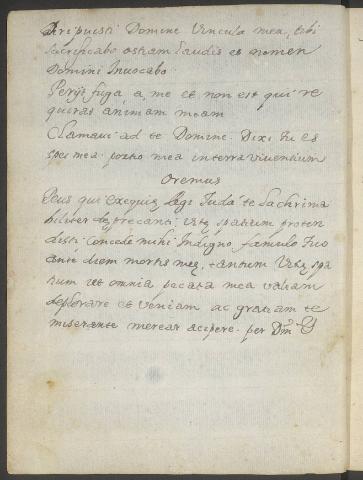 Diripuisti Domine Vincula mea, tibi
sacrificabo ostiam laudis et nomen
Domini Invocabo
Perijt fuga a, me et non est qui re
quirat animam meam
Clamavi ad te Domine. Dixi tu es
spes mea. portio mea in terra viventium
Oremus
Deus qui Regi Juda te lachrima
biliter deprecanti vitę spatium proten
disti. Concede mihi Indigno, famulo Tuo
ante diem mortis meę, tantum Vitę spa
tium ut omnia pecata mea valiam
deplorare et veniam ac gratiam te
miserante merear acipere. per Dm̄